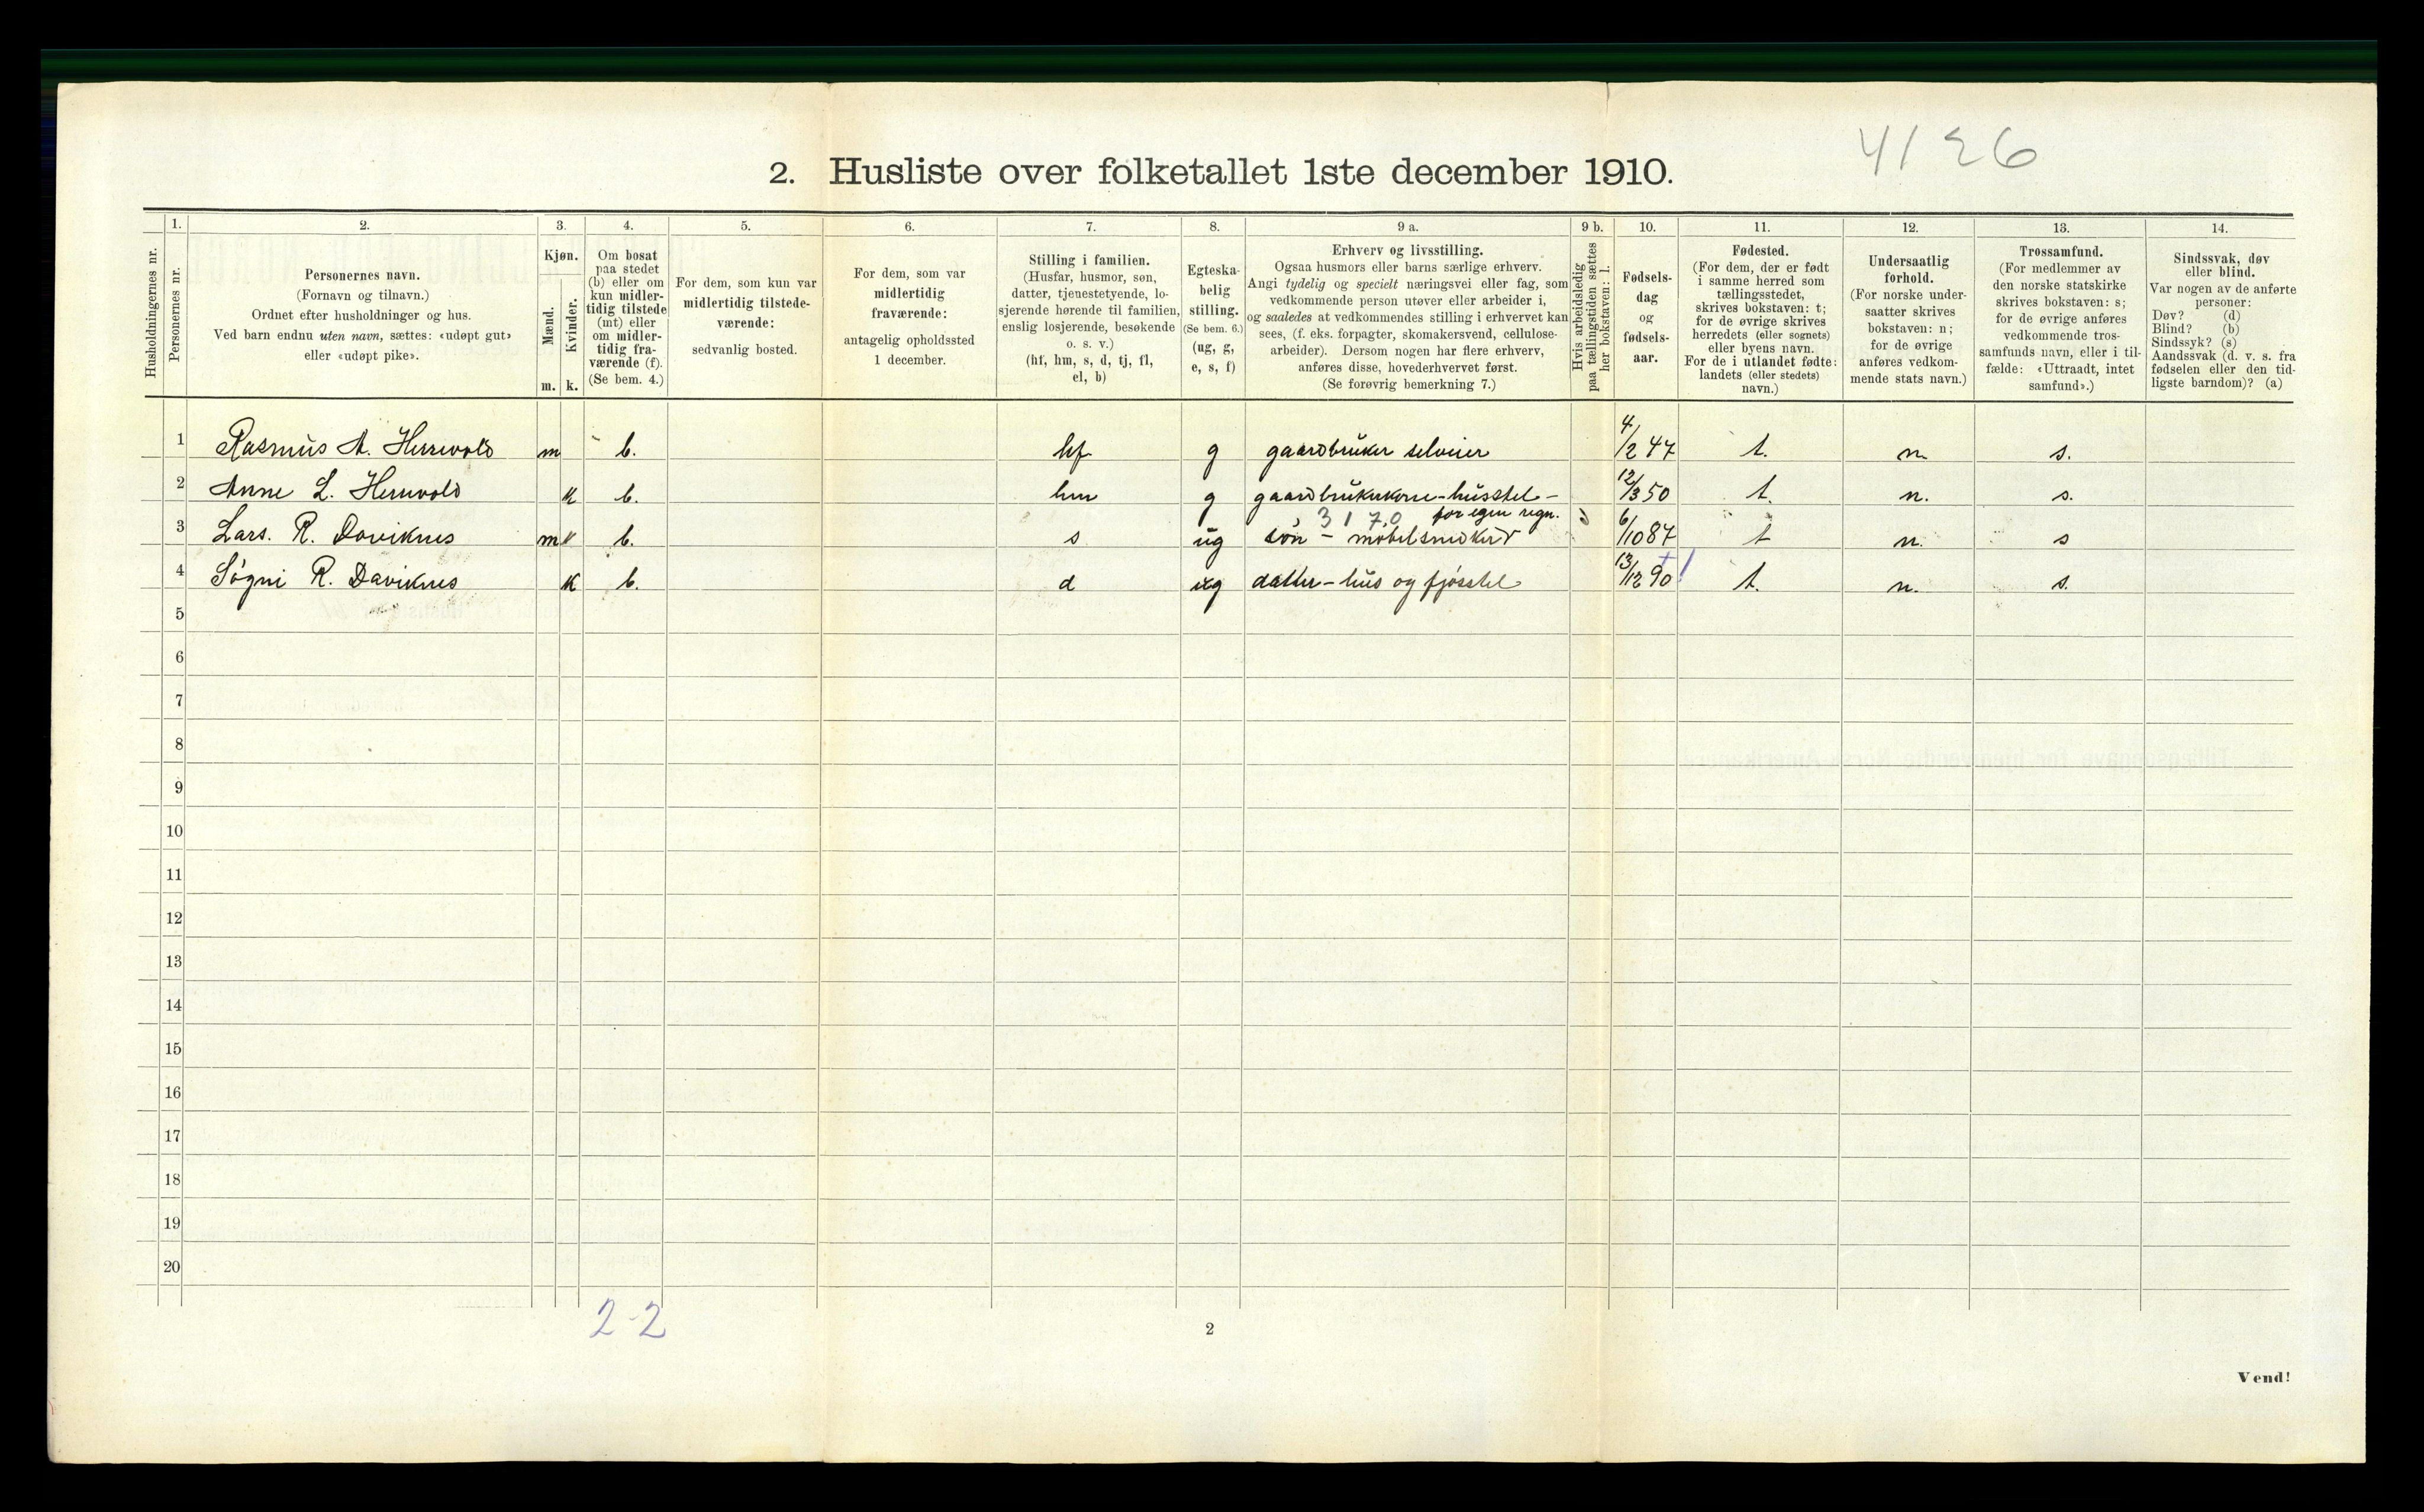 4126
2. Husliste over folketallet 1ste december 1910.
Husholdningernes nr.
1.
Personernes nr.
2.
Personernes navn.
(Fornavn og tilnavn.)
Ordnet efter husholdninger og hus.
Ved barn endnu uten navn, sættes: «udøpt gut»
eller «udøpt pike».
3.
Kjøn.
Mænd.
Kvinder.
m. k.
4.
Om bosat
paa stedet
(b) eller om
kun midler-
tidig tilstede
(mt) eller
om midler-
tidig fra-
værende (f).
(Se bem. 4.)
5.
For dem, som kun var
midlertidig tilstede-
værende:
sedvanlig bosted.
6.
For dem, som var
midlertidig
fraværende:
antagelig opholdssted
1 december.
7.
Stilling i familien.
(Husfar, husmor, søn,
datter, tjenestetyende, lo-
sjerende hørende til familien,
enslig losjerende, besøkende
o. s. v.)
(hf, hm, s, d, tj, fl,
el, b)
8.
Egteska-
belig
stilling.
(Se bem. 6.)
(ug, g,
e, s, f)
9 a.
Erhverv og livsstilling.
Ogsaa husmors eller barns særlige erhverv.
Angi tydelig og specielt næringsvei eller fag, som
vedkommende person utøver eller arbeider i,
og saaledes at vedkommendes stilling i erhvervet kan
sees, (f. eks. forpagter, skomakersvend, cellulose-
arbeider). Dersom nogen har flere erhverv,
anføres disse, hovederhvervet først.
(Se forøvrig bemerkning 7.)
9 b.
Hvis arbeidsledig
paa tællingstiden sættes
her bokstaven: l.
10.
Fødsels-
dag
og
fødsels-
aar.
11.
Fødested.
(For dem, der er født
i samme herred som
tællingsstedet,
skrives bokstaven: t;
for de øvrige skrives
herredets (eller sognets)
eller byens navn.
For de i utlandet fødte:
landets (eller stedets)
navn.)
12.
Undersaatlig
forhold.
(For norske under-
saatter skrives
bokstaven: n;
for de øvrige
anføres vedkom-
mende stats navn.)
13.
Trossamfund.
(For medlemmer av
den norske statskirke
skrives bokstaven: s;
for de øvrige anføres
vedkommende tros-
samfunds navn, eller i til-
fælde: «Uttraadt, intet
samfund».)
14.
Sindssvak, døv
eller blind.
Var nogen av de anførte
personer:
Døv? (d)
Blind? (b)
Sindssyk? (s)
Aandssvak (d. v. s. fra
fødselen eller den tid-
ligste barndom)? (a)
1 Rasmus A. Herrevold m b. hf g gaardbruker selveier 4/2 47 t. n. s.
2 Anne L. Herrevold k b. hm g gaardbrukerkone - husstel - 12/3 50 t. n. s.
3170 for egen regn.
3 Lars. R. Daviknes m b. s ug søn - møbelsnedker 6/10 87 t n. s
4 Søgni R. Daviknes k b. d ug datter - hus og fjøsstel 13/12 90 t. n. s.
5
6
7
8
9
10
11
12
13
14
15
16
17
18
19
20
2-2
2
Vend!